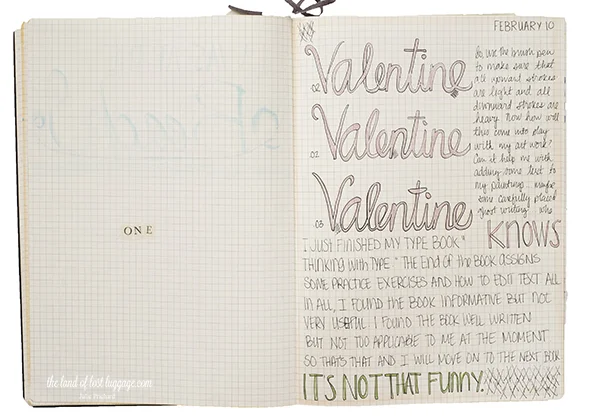 ONE
the land of lost luggage.com
FEBRUARY 10
02 Valentine
02 Valentine
03 Valentine
to use the brush pen
to make sure that
all upward strokes
are light and all
downward strokes are
heavy. Now how will
this come into play
with my art work?
Can it help me with
adding some text to
my paintings... maybe
some carefully placed
ghost writing? who
KNOWS
I JUST FINISHED MY TYPE BOOK "
THINKING WITH TYPE." THE END OF THE BOOK ASSIGNS
SOME PRACTICE EXERCISES AND HOW TO EDIT TEXT ALL
IN ALL, I FOUND THE BOOK INFORMATIVE BUT NOT
VERY USEFUL. I FOUND THE BOOK WELL WRITTEN
BUT NOT TOO APPLICABLE TO ME AT THE MOMENT
SO THATS THAT AND I WILL MOVE ON TO THE NEXT BOOK
ITS NOT THAT FUNNY.